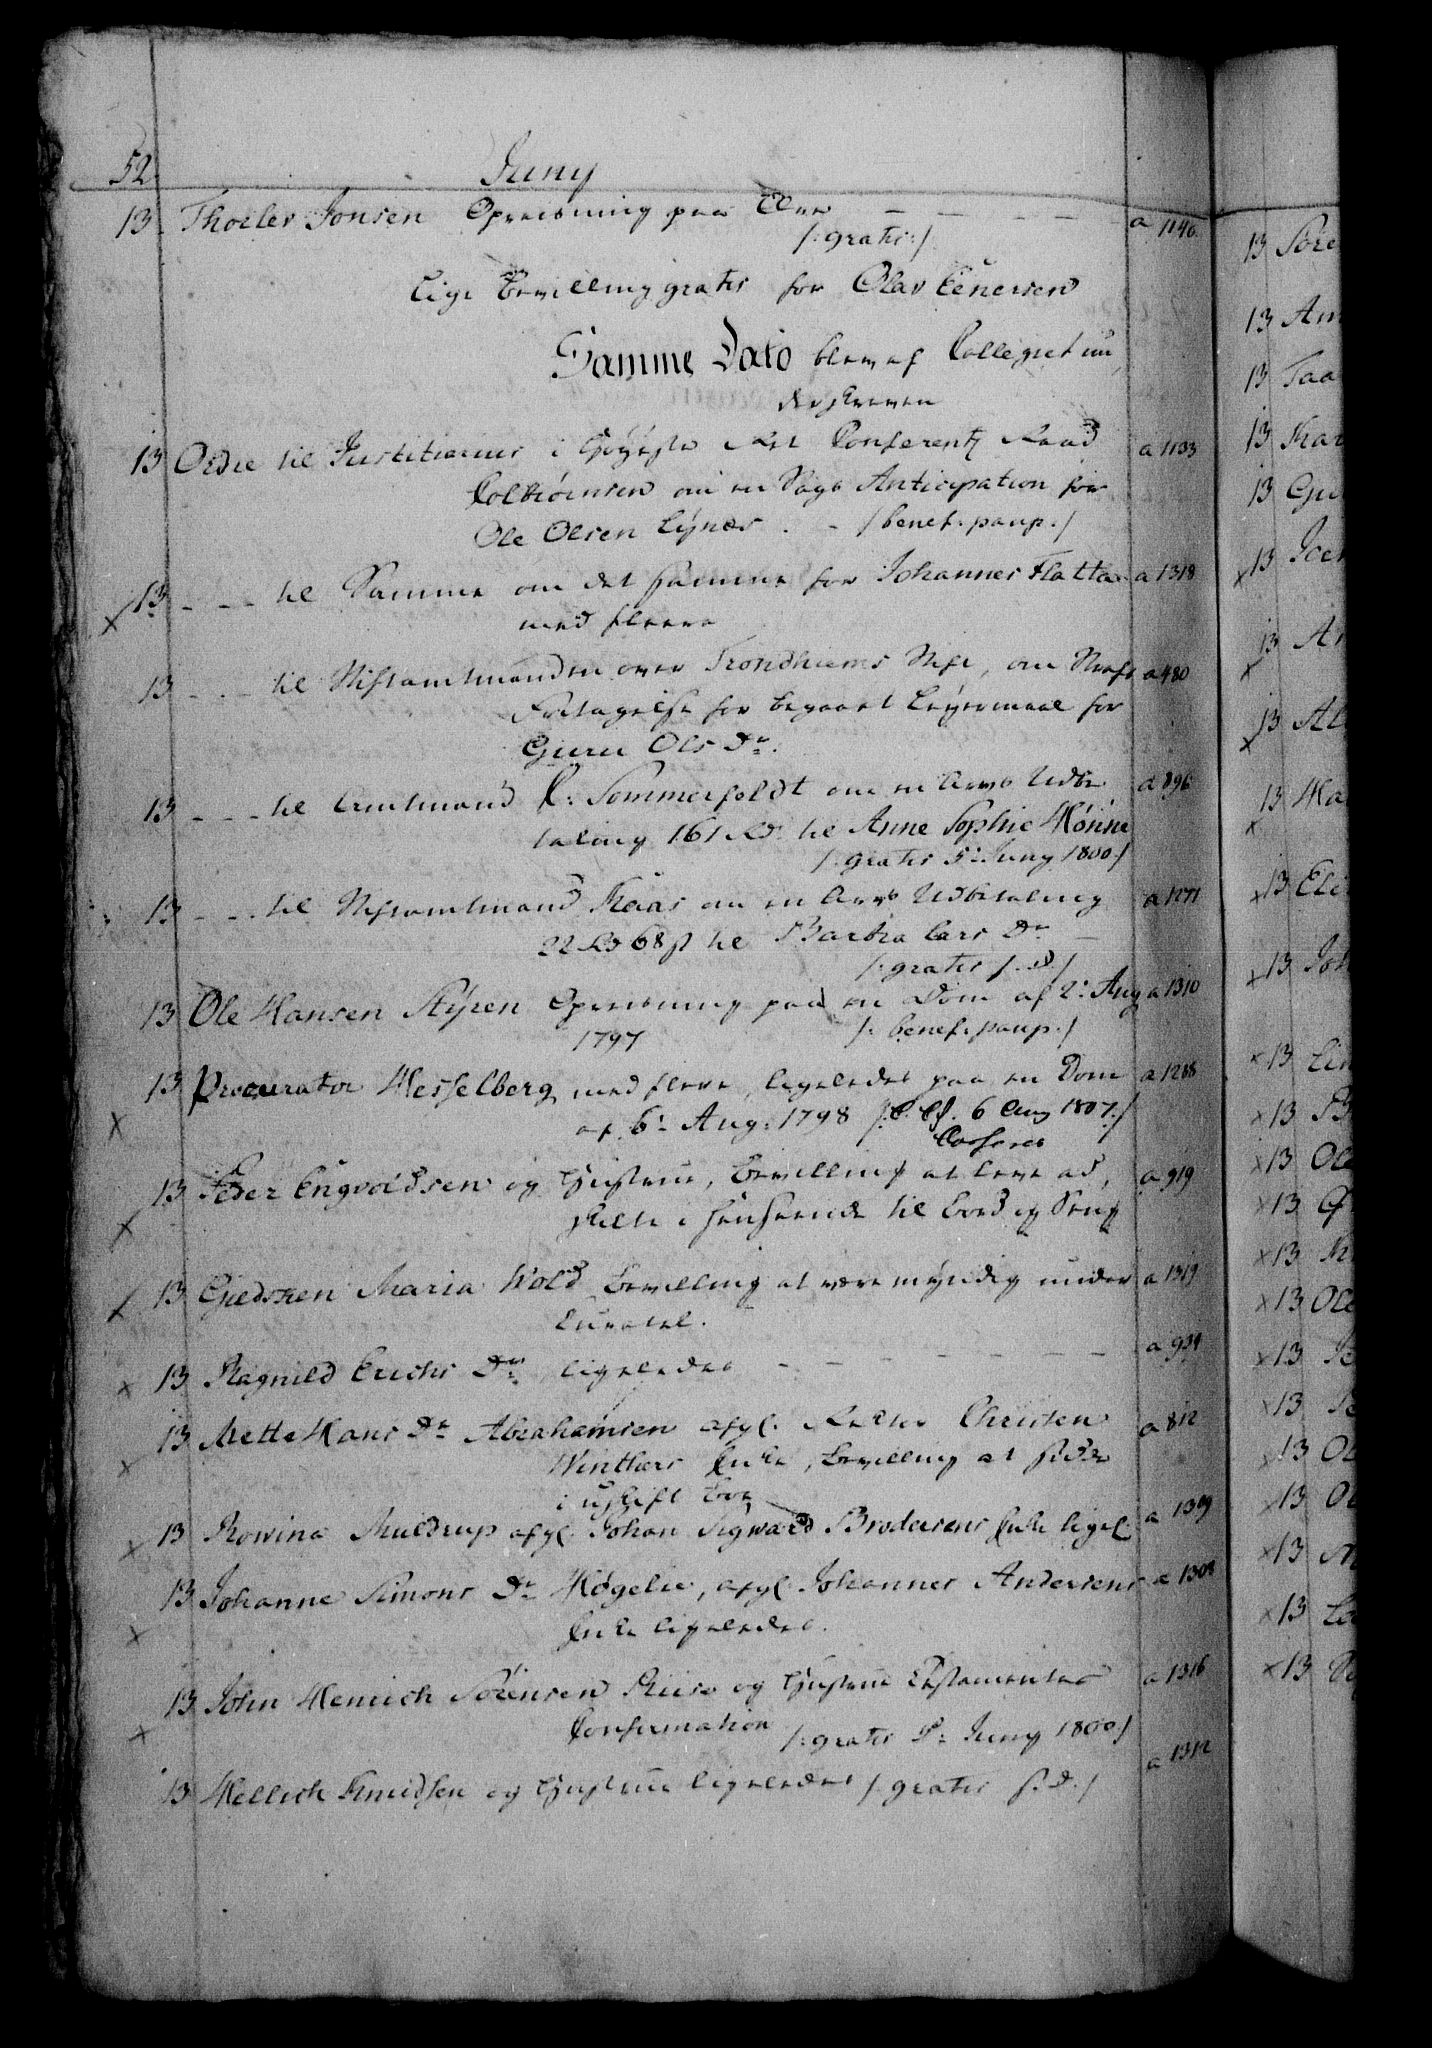 52 Juny
13 Thoelev Jonsen Opreisning paa Arv - - - - a 1146
/:gratis:/
lige Bevilling gratis for Olav Einersen
Samme Dato blev af Collegiet un
derskreven
13 Ordre til Justitiarius i Høyeste Ret Conferentz Raad a 1133
Colbiørnsen om en Sags Anticipation for
Ole Olsen Lynæs . - /benef: paup:/
x 13 - - - til Samme om det samme for Johannes Flatta a 1318
med fleere
13 - . - til Stiftamtmanden over Trondhiems Stift, om Straf a 480
Fritagelse for begaaet Leyermaal for
Guru Ols Dr.
13 - - - til Amtmand C: Sommerfeldt om en Arvs Udbe a 896
taling 161 Rd. til Anne Sophie Hönne
/:gratis 5: Juny 1800:/
13 - - . til Stiftamtmand Kaas om en Arvs Udbetaling a 1271
22 Rd 68 ß til Barbra Lars Dr
/:gratis s. d:/
13 Ole Hansen Styren Opreisning paa en Dom af 2: Aug a 1310
1797 /: benef: paup:/
x 13 Procurator Hesselberg med flere, ligeledes paa en Dom a 1288
af 6: Aug: 1798 6 Aug 1807:/
x 13 Peder Engvoldsen og Hustrue, Bevilling at leve ad, a 919
skilte i henseende til Bord og Seng
x 13 Giedsken Maria Wold Bevilling at være myndig under a 1319
Curatel.
x 13 Ragnild Erichs Dr ligeledes - - - - - - - a 934
x 13 Mette Hans Dr Abrahamsen afgl. Christen a 812
Winthers Enke, Bevilling at sidde
i uskift Boe
x 13 Rowina Muldrup afgl. Johan Sigward Brodersens Enke ligel: a 1309
x 13 Johanne Simons Dr Høgelie, afgl Johannes Andersens a 1308
Enke ligeledes.
x 13 John Henrich Sörensen Riise og Hustrue Testamentes a 1316
Confirmation /:gratis d: Juny 1800:/
13 Hellich Knudsen og Hustrue ligeledes /gratis s. d:/ a 1312